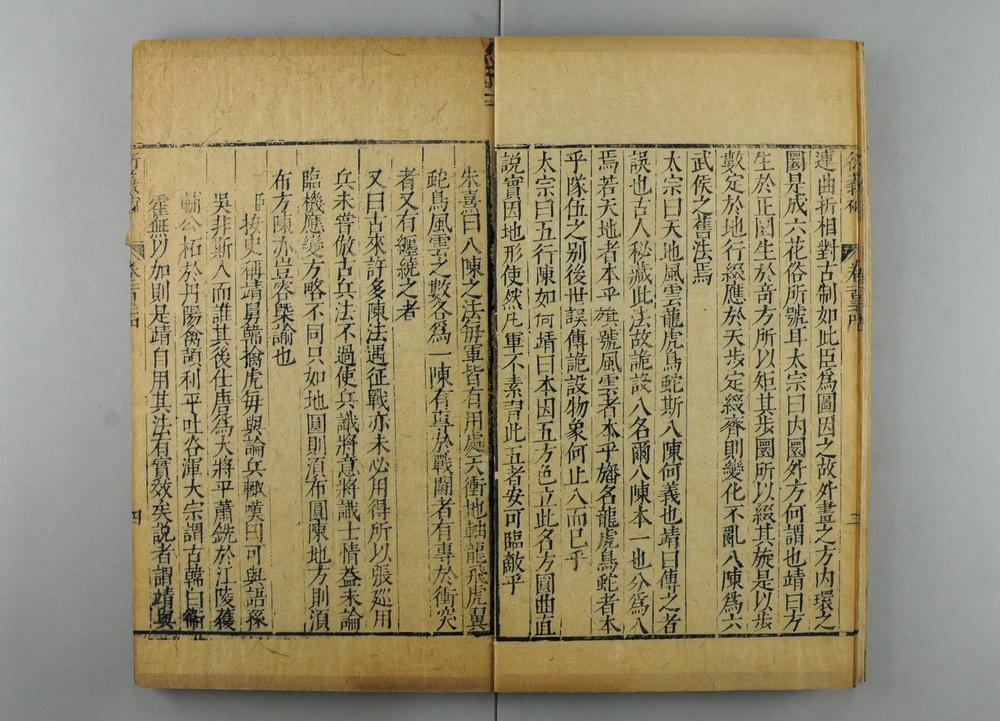 連曲折相對古制如此臣爲圖因之故外畫之方内環之
圜是成六花俗所號耳太宗曰内圜外方何謂也靖曰方
生於正圜生於奇方所以矩其步圜所以綴其旋是以步
數定於地行綴應於天步定綴齊則變化不亂八陳爲六
武侯之舊法焉
太宗曰天地風雲龍虎鳥蛇斯八陳何義也靖曰傳之者
誤也古人秘藏此法故詭設八名爾八陳本一也分爲八
焉若天地者本乎旗號風雲者本乎旛名龍虎鳥蛇者本
乎隊伍之别後世誤傳詭設物象何止八而已乎
太宗曰五行陳如何靖曰本因五方色立此名方圓曲直
説實因地形使然凡軍不素習此五者安可臨敵乎
三
朱熹曰八陳之法每軍皆有用處天衝地軸龍飛虎翼
蛇鳥風雲之數各爲一陳有專於戰鬪者有專於衝突
者又有纏繞之者
又曰古來許多陳法遇征戰亦未必用得所以張廵用
兵未嘗倣古兵法不過使兵識將意將識士情葢未論
臨機應變方略不同只如地圓則湏布圓陳地方則湏
布方陳亦豈容槩論也
臣按史稱靖舅韓擒虎每與論兵輒嘆曰可與語孫
吳非斯人而誰其後仕唐爲大將平蕭銑於江陵獲
輔公柘於丹陽禽頡利平吐谷渾太宗謂古韓白衞
霍無以加則是靖自用其法有實效矣説者謂靖與
四